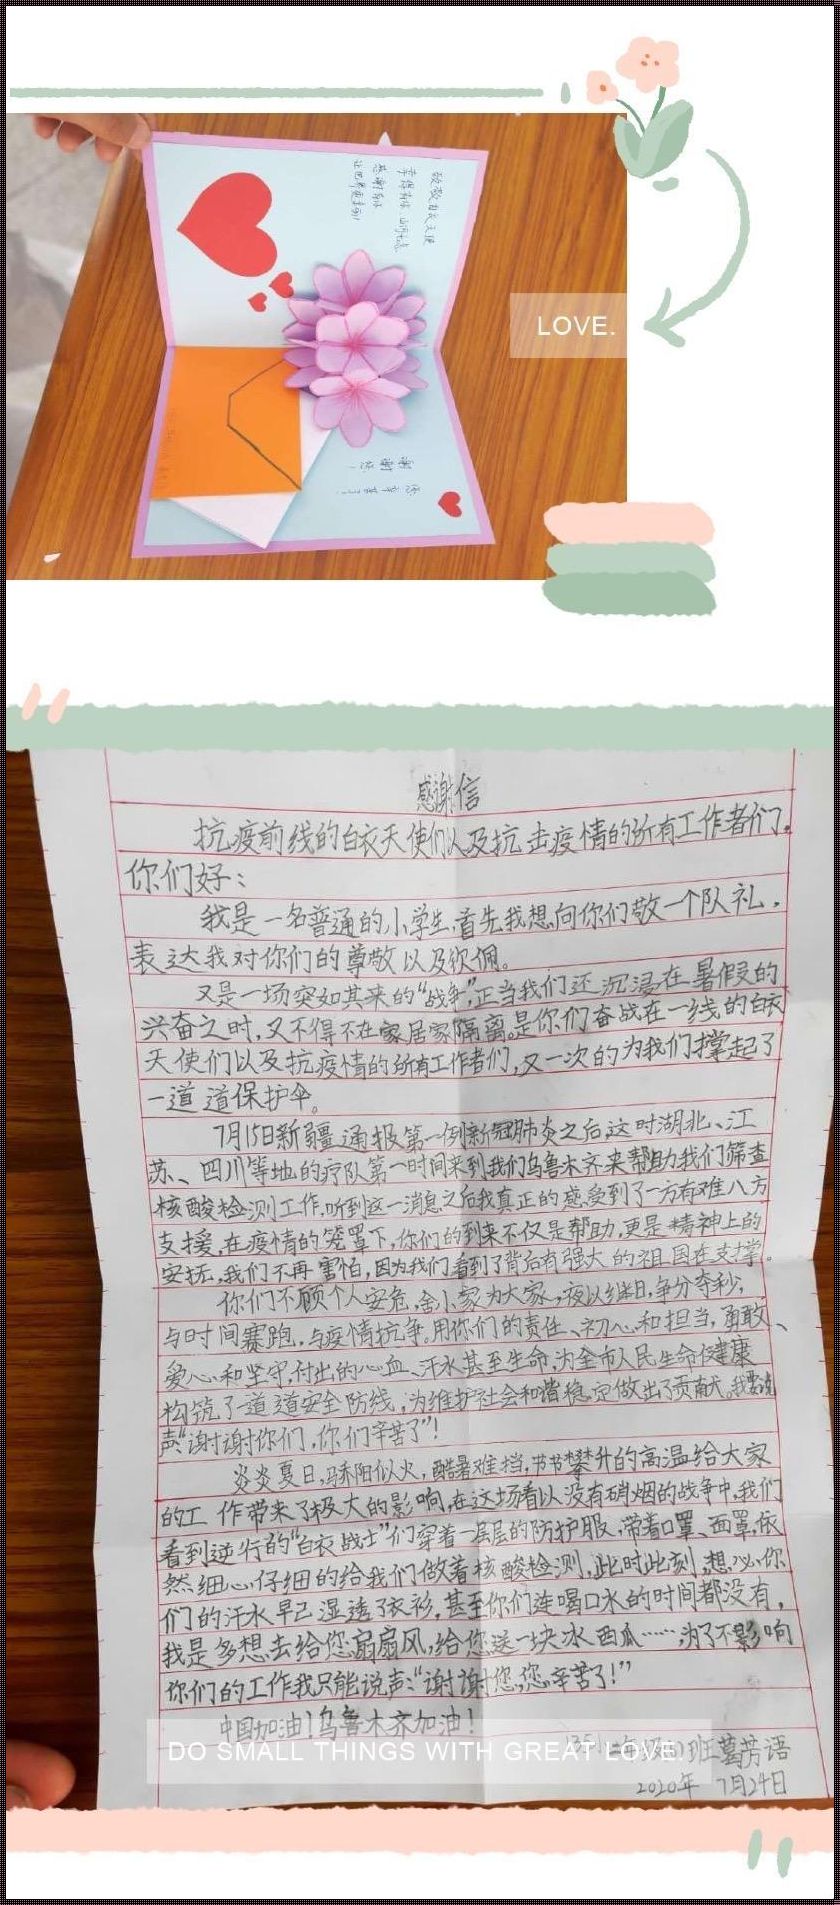 致敬白衣天使
幸得有你,山河无恙
感谢有你
让世界更美好!
LOVE.
谢谢您!
您辛苦了!
感谢信
抗疫前线的白衣天使们以及抗击疫情的所有工作者们。
你们好:
我是一名普通的小学生,首先我想向你们敬一个队礼,
表达我对你们的尊敬以及钦佩。
又是一场突如其来的“战争”,正当我们还沉浸在暑假的
兴奋之时,又不得不在家居家隔离。是你们奋战在一线的白衣
天使们以及抗疫情的所有工作者们,又一次的为我们撑起了
一道道保护伞。
7月15日新疆通报第一例新冠肺炎之后,这时湖北、江
苏、四川等地的疗队第一时间来到我们乌鲁木齐来帮助我们筛查
核酸检测工作,听到这一消息之后我真正的感受到了一方有难八方
支援,在疫情的笼罩下,你们的到来不仅是帮助,更是精神上的
安抚,我们不再害怕,因为我们看到了背后有强大的祖国在支撑。
你们不顾个人安危,舍小家为大家,夜以继日,争分夺秒,
与时间赛跑,与疫情抗争。用你们的责任、初心和担当,勇敢、
爱心和坚守,付出的心血、汗水甚至生命,为全市人民生命健康
构筑了道道安全防线,为维护社会和谐稳定做出了贡献。我要说
声“谢谢你们,你们辛苦了”!
炎炎夏日,骄阳似火,酷暑难挡,节节攀升的高温给大家
的工作带来了极大的影响,在这场看以没有硝烟的战争中,我们
看到逆行的“白衣战士”们穿着一层层的防护服,带着口罩、面罩,依
然细心仔细的给我们做着核酸检测,此时此刻,想必你
们的汗水早己湿透了衣衫,甚至你们连喝口水的时间都没有,
我是多想去给您扇扇风,给您送一块冰西瓜……,为了不影响
你们的工作我只能说声:“谢谢您,您辛苦了!”
中国加油!乌鲁木齐加油!
DO SMALL THINGS WITH GREAT LOVE.
班王葛芳语
2020年 7月24日